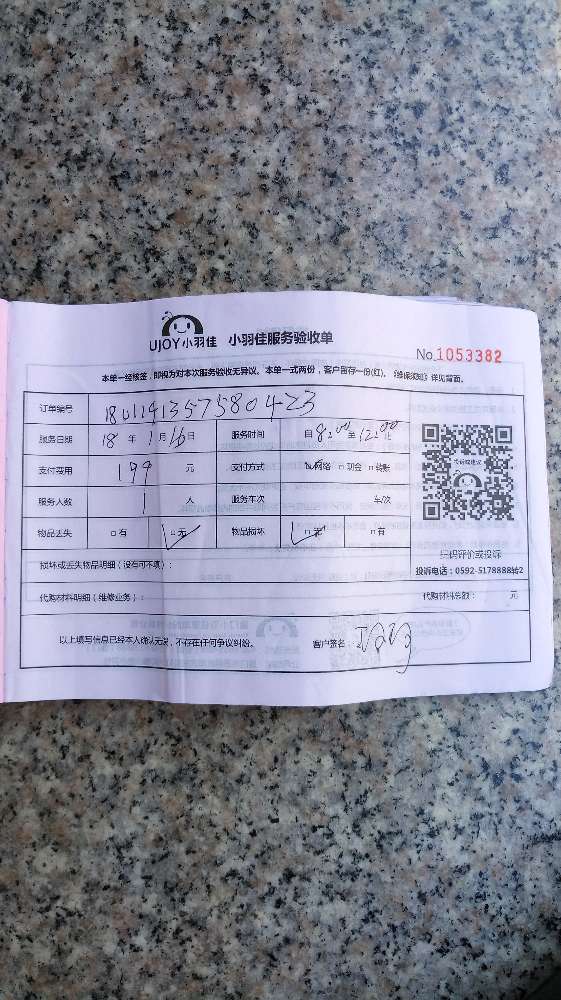 UJOY小羽佳 小羽佳服务验收单
No.1053382
本单一经核签,即视为对本次服务验收无异议。本单一式两份,客户留存一份(红)。《维保须知》详见背面。
订单编号
服务日期 18 年 1 月 16 日 服务时间 自 8:00 至 12:00 止
支付费用 199 元 支付方式 网络 现金 转账
服务人数 1 人 服务车次 车/次
物品丢失 有 无 物品损坏 无 有
扫码评价或投诉
损坏或丢失物品明细(没有可不填):
投诉电话:0592-5178888转2
代购材料明细(维修业务): 代购材料总额: 元
以上填写信息已经本人确认无误,不存在任何争议纠纷。 客户签名: